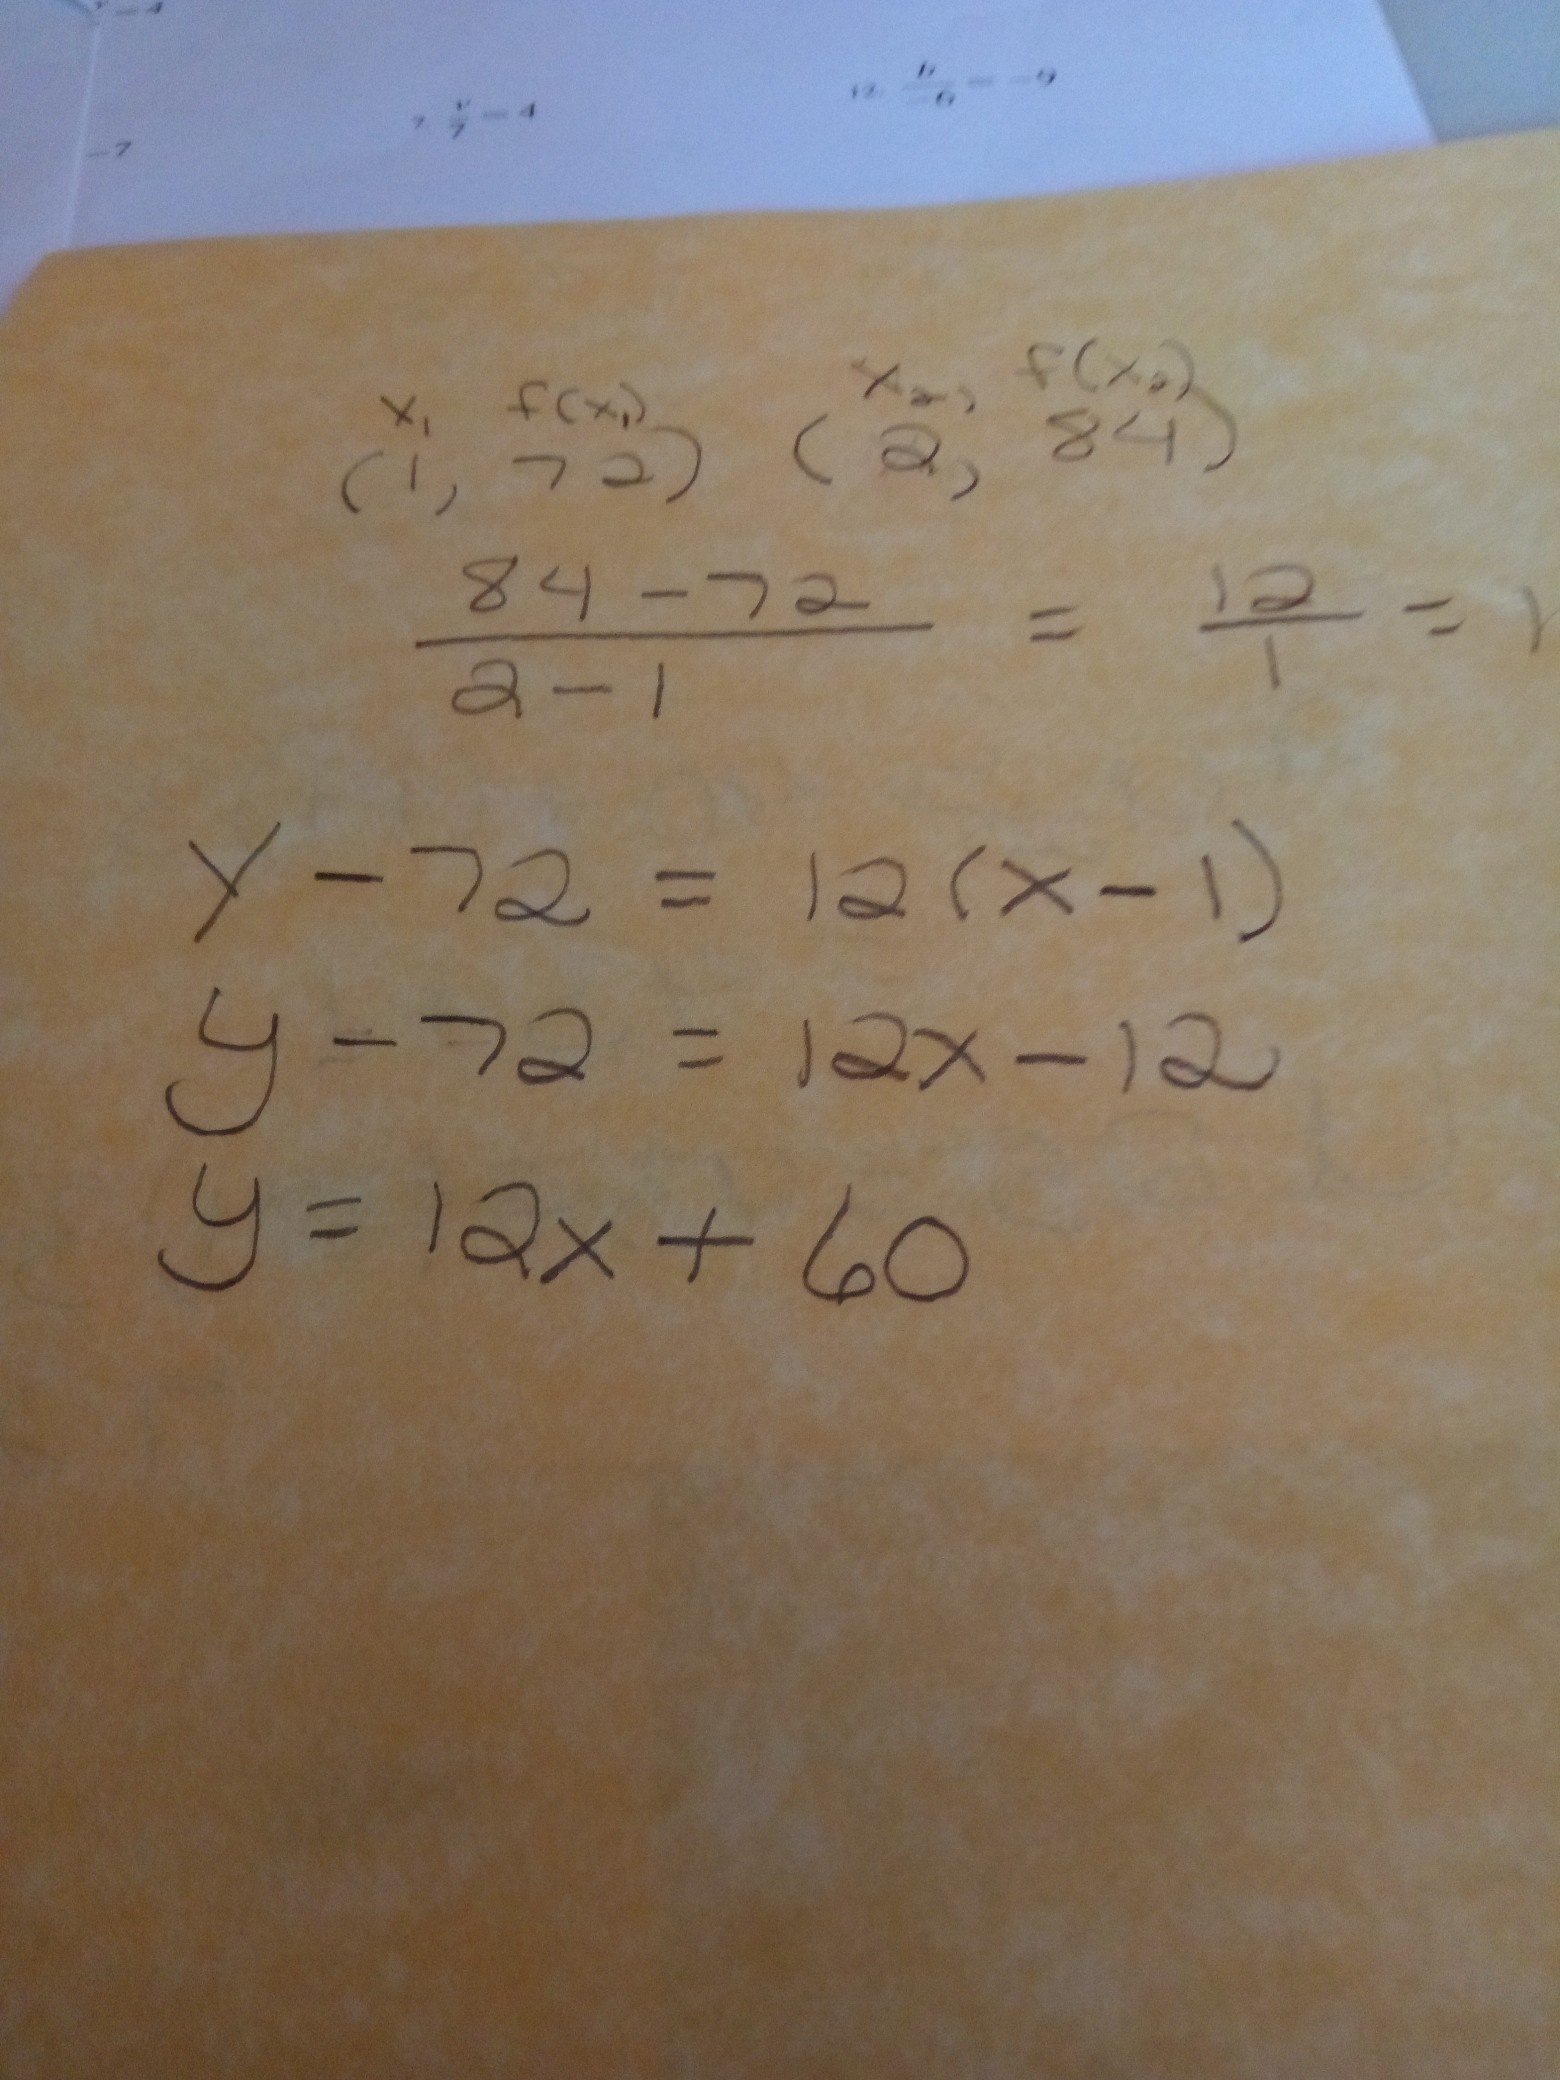 -7
7. v/7 = 4
12. b/-6 = -9
x₁ f(x₁) x₂, f(x₂)
(1, 72) (2, 84)
84 - 72 / 2 - 1 = 12 / 1 =
y - 72 = 12(x - 1)
y - 72 = 12x - 12
y = 12x + 60